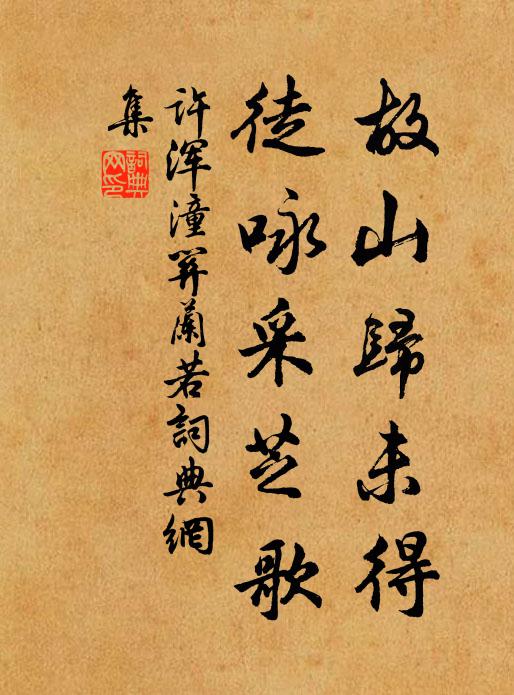 故山歸未得
徒咏采芝歌
许浑潼关蘭若詞典網
集
詞典網印